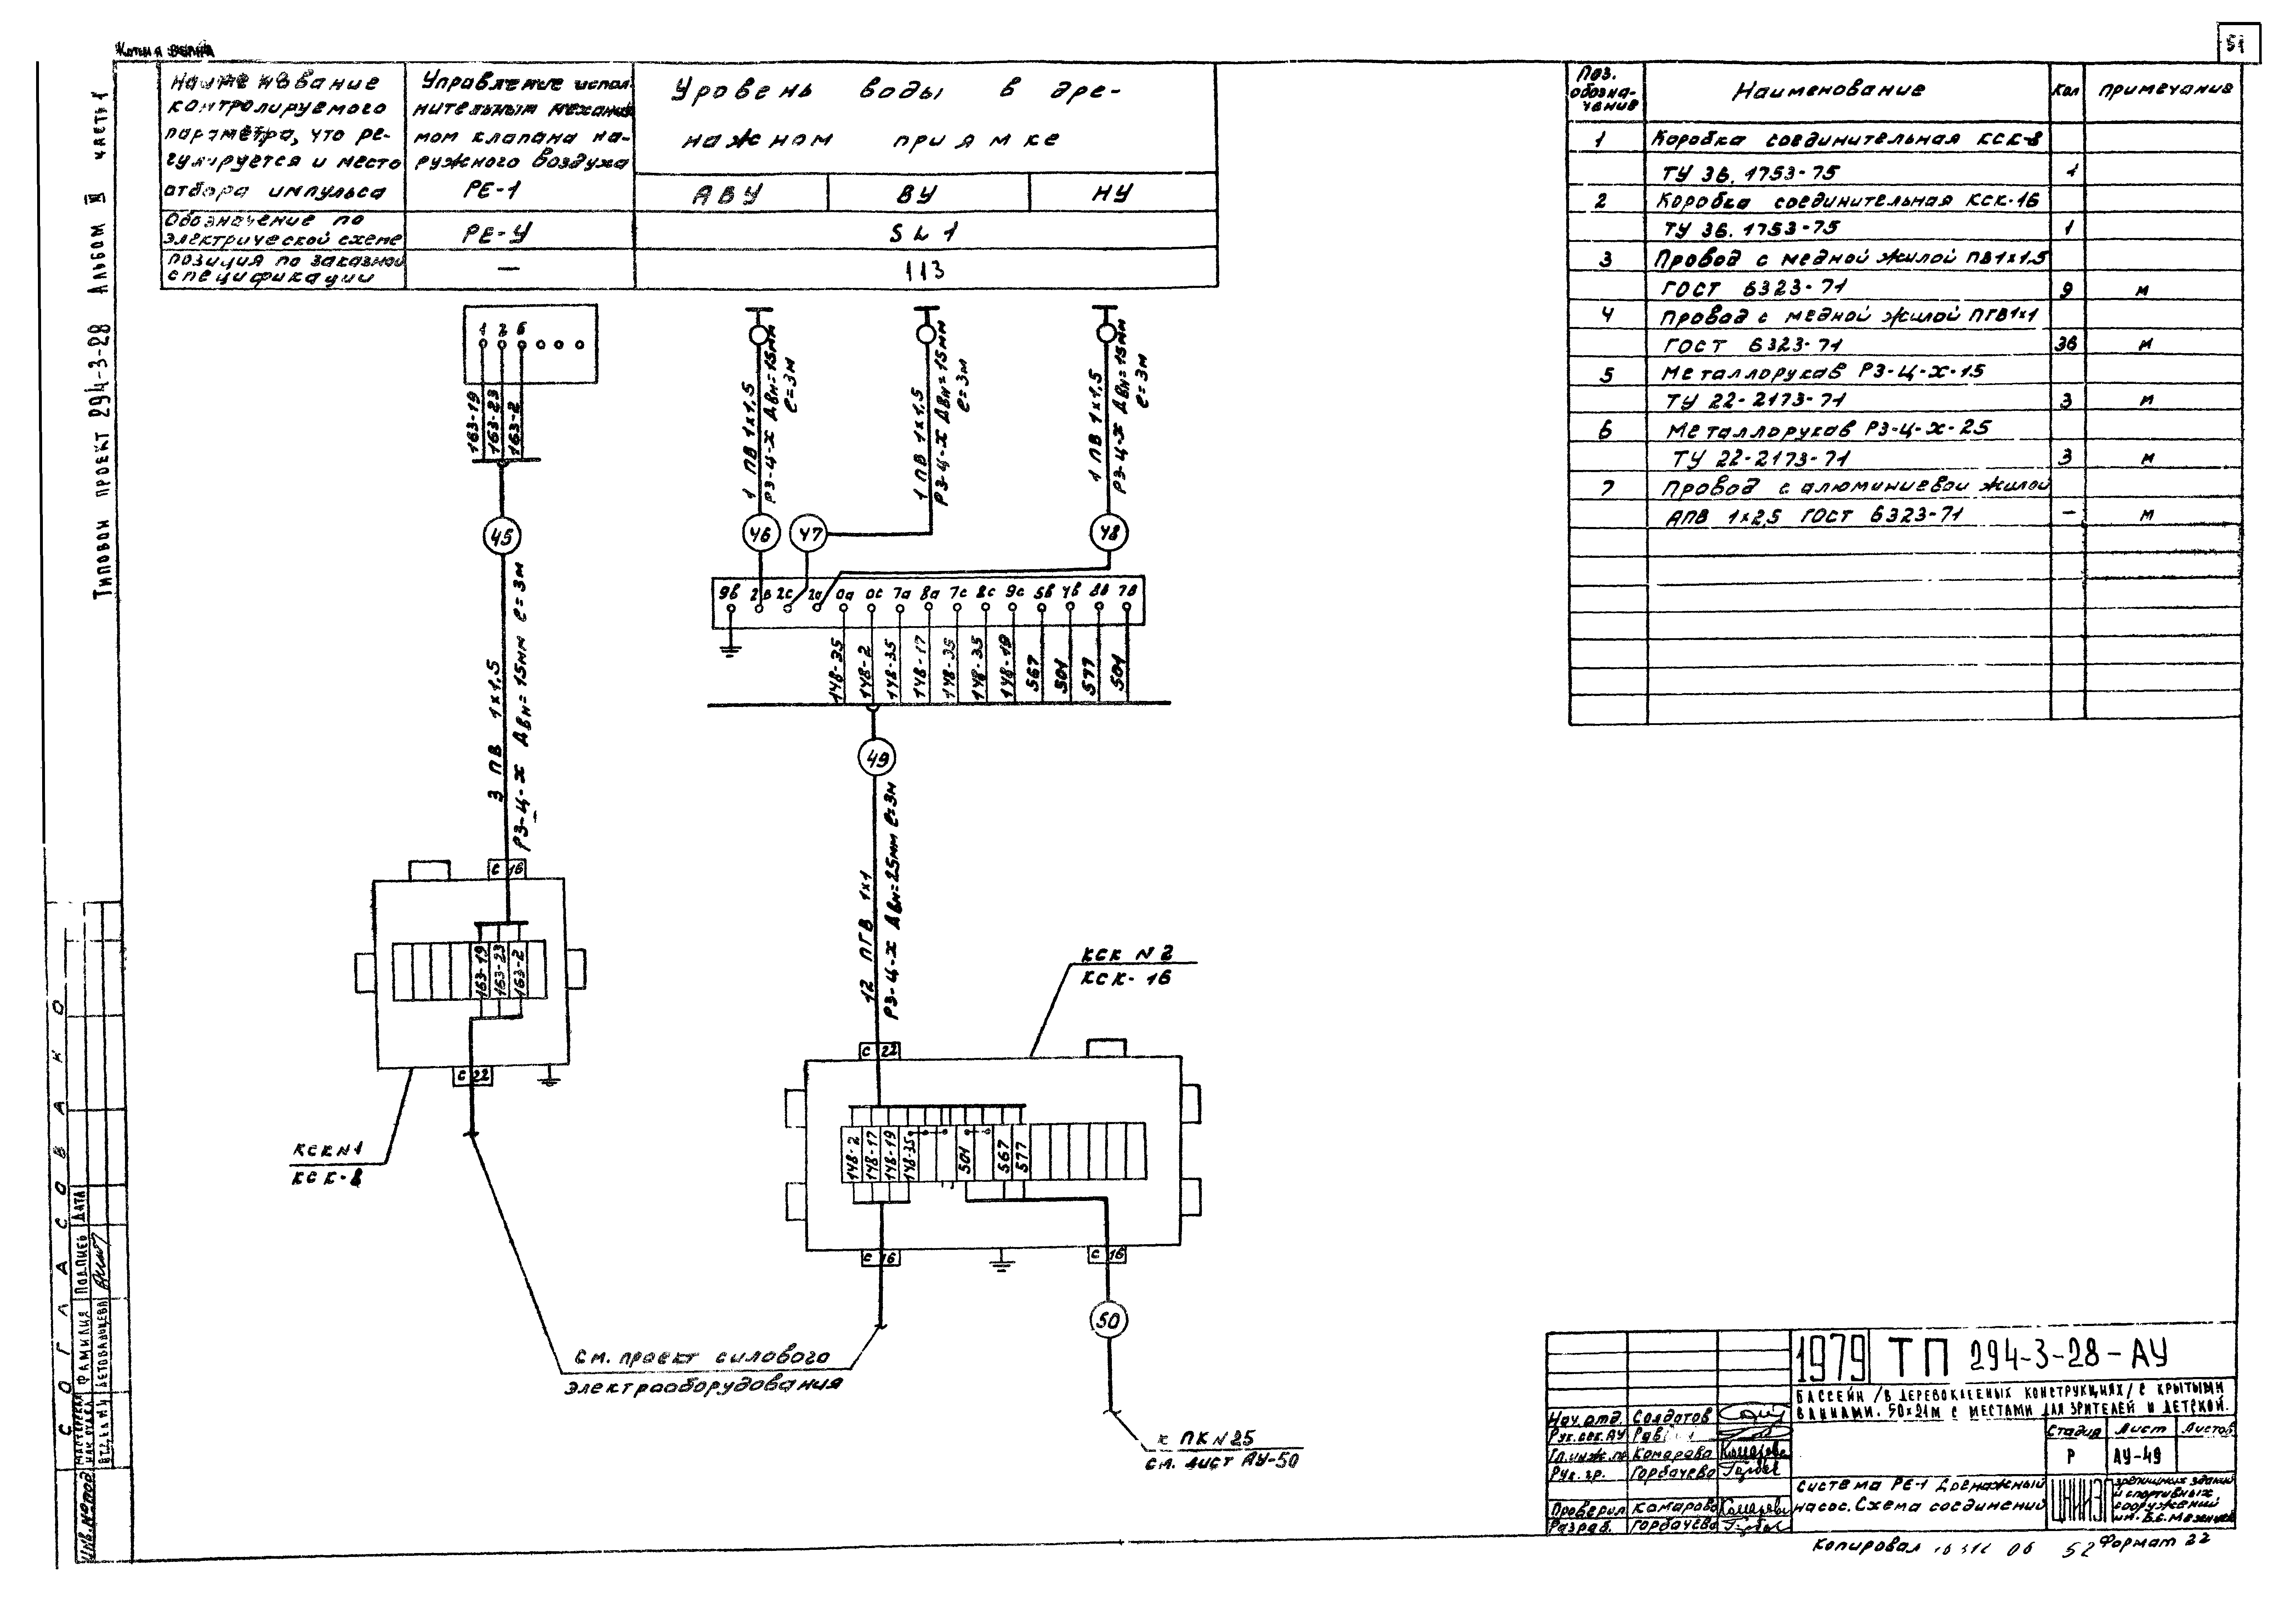 51
Типовой проект 294-3-28 Альбом III часть 1
Наименование контролируемого параметра, что регулируется и место отбора импульса
Управление исполнительным механизмом клапана наружного воздуха РЕ-1
Уровень воды в дренажном приямке
АВУ ВУ НУ
Обозначение по электрической схеме
РЕ-У
SL1
позиция по заказной спецификации
—
113
1 2 6
163-19
163-23
163-2
45
3 ПВ 1х1,5
РЗ-Ц-Х Двн=15мм ℓ=3м
1 ПВ 1х1,5
РЗ-Ц-Х Двн=15мм
ℓ=3м
1 ПВ 1х1,5
РЗ-Ц-Х Двн=15мм
ℓ=3м
1 ПВ 1х1,5
РЗ-Ц-Х Двн=15мм
ℓ=3м
46
47
48
9в 2в 2с 2а 0а 0с 7а 8а 7с 8с 9с 5в 4в 8в 7в
148-35
148-2
148-35
148-17
148-35
148-35
148-19
567
501
577
501
49
12 ПГВ 1х1
РЗ-Ц-Х Двн=25мм ℓ=3м
С 16
163-19
163-23
163-2
С 22
КСК N1
КСК-8
КСК N2
КСК-16
С 22
148-2
148-17
148-19
148-35
501
567
577
С 16
С 16
50
см. проект силового
электрооборудования
к ПК N25
см. лист АУ-50
Поз. обозначение
Наименование
Кол
примечания
1 Коробка соединительная КСК-8
ТУ 36.1753-75 1
2 Коробка соединительная КСК-16
ТУ 36.1753-75 1
3 Провод с медной жилой ПВ1х1.5
ГОСТ 6323-71 9 м
4 Провод с медной жилой ПГВ1х1
ГОСТ 6323-71 36 м
5 Металлорукав РЗ-Ц-Х-15
ТУ 22-2173-71 3 м
6 Металлорукав РЗ-Ц-Х-25
ТУ 22-2173-71 3 м
7 Провод с алюминиевой жилой
АПВ 1х2,5 ГОСТ 6323-71 — м
СОГЛАСОВАКО
ФАМИЛИЯ ПОДПИСЬ ДАТА
ИНВ. № ПОД
1979 ТП 294-3-28-АУ
БАССЕЙН /В ДЕРЕВОКЛЕЕНЫХ КОНСТРУКЦИЯХ/ С КРЫТЫМИ
ВАННАМИ. 50х21м С МЕСТАМИ ДЛЯ ЗРИТЕЛЕЙ И ДЕТСКОЙ.
Нач. отд. Солдатов
Рук. сек. АУ
Гл. инж. пр Комарова
Рук. гр. Горбачева
Проверил Комарова
Разраб. Горбачева
Стадия Лист Листов
Р АУ-49
Система РЕ-1 Дренажный
насос. Схема соединений
ЦНИИЭП
зрелищных зданий
и спортивных
сооружений
им. Б.С. Мезенцева
Копировал
52 Формат 22